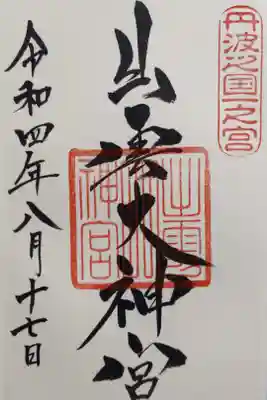 丹波之国一之宮
出雲大神宮
令和四年八月十七日